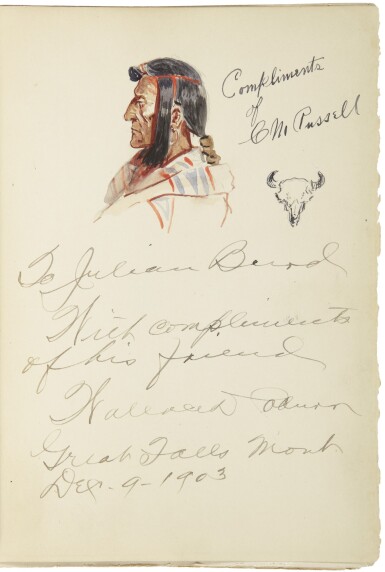 Compliments
of
CM Russell
To Julian
With compliments
of his friend
Great Falls Mont
Dec-9-1903